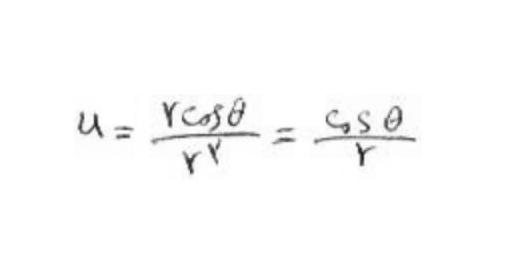 u = \frac{r cos θ}{r^۲} = \frac{cos θ}{r}